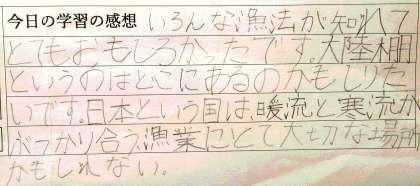 今日の学習の感想 いろんな漁法が知れて
とてもおもしろかったです。大陸棚
というのはどこにあるのかもしりた
いです。日本という国は、暖流と寒流が
ぶつかり合う漁業にとて大切な場所
かもしれない。